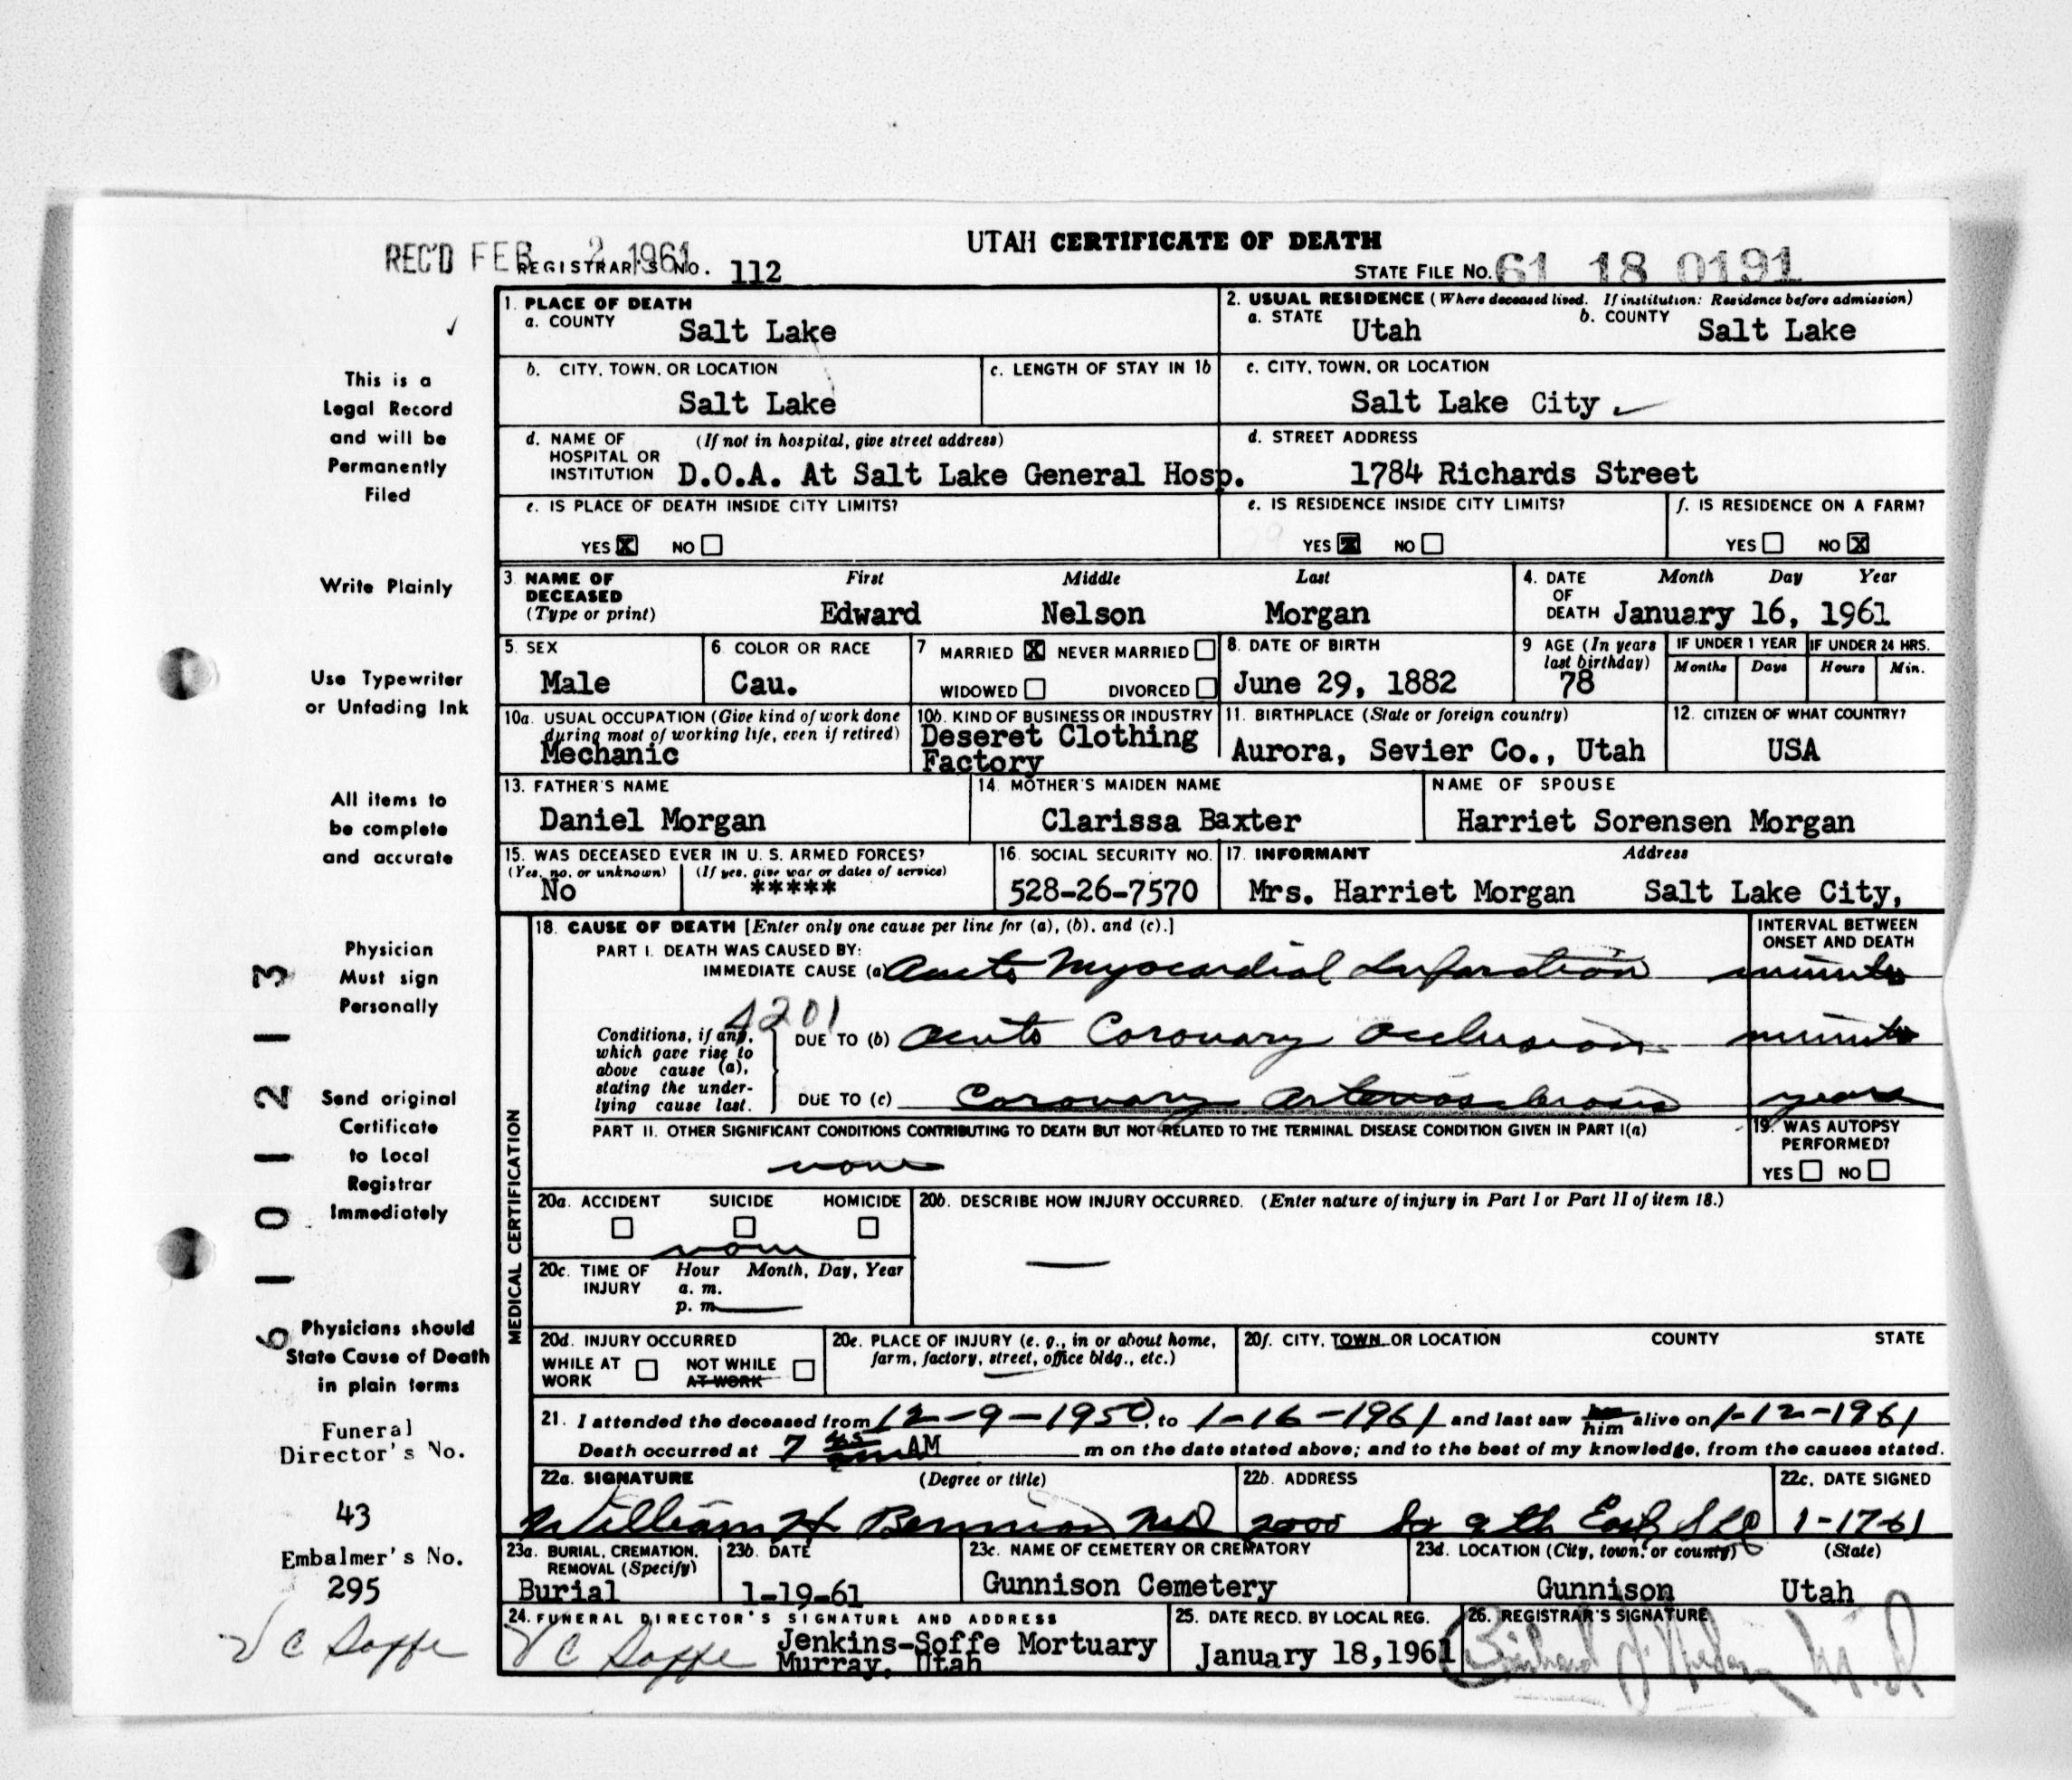 UTAH CERTIFICATE OF DEATH
REC'D FEB 2 1961
REGISTRAR'S NO. 112
STATE FILE NO. 61 18 0191
1. PLACE OF DEATH
a. COUNTY Salt Lake
2. USUAL RESIDENCE (Where deceased lived. If institution: Residence before admission)
a. STATE Utah b. COUNTY Salt Lake
b. CITY, TOWN, OR LOCATION
Salt Lake
c. LENGTH OF STAY IN 1b
c. CITY, TOWN, OR LOCATION
Salt Lake City
d. NAME OF (If not in hospital, give street address)
HOSPITAL OR
INSTITUTION D.O.A. At Salt Lake General Hosp.
d. STREET ADDRESS
1784 Richards Street
e. IS PLACE OF DEATH INSIDE CITY LIMITS?
YES X NO
e. IS RESIDENCE INSIDE CITY LIMITS?
YES X NO
f. IS RESIDENCE ON A FARM?
YES NO X
3. NAME OF DECEASED (Type or print)
First Middle Last
Edward Nelson Morgan
4. DATE OF DEATH Month Day Year
January 16, 1961
5. SEX
Male
6. COLOR OR RACE
Cau.
7 MARRIED X NEVER MARRIED
WIDOWED DIVORCED
8. DATE OF BIRTH
June 29, 1882
9 AGE (In years last birthday)
78
IF UNDER 1 YEAR
Months Days
IF UNDER 24 HRS.
Hours Min.
10a. USUAL OCCUPATION (Give kind of work done during most of working life, even if retired)
Mechanic
10b. KIND OF BUSINESS OR INDUSTRY
Deseret Clothing
Factory
11. BIRTHPLACE (State or foreign country)
Aurora, Sevier Co., Utah
12. CITIZEN OF WHAT COUNTRY?
USA
13. FATHER'S NAME
Daniel Morgan
14. MOTHER'S MAIDEN NAME
Clarissa Baxter
NAME OF SPOUSE
Harriet Sorensen Morgan
15. WAS DECEASED EVER IN U. S. ARMED FORCES?
(Yes, no, or unknown) (If yes, give war or dates of service)
No *****
16. SOCIAL SECURITY NO.
528-26-7570
17. INFORMANT Address
Mrs. Harriet Morgan Salt Lake City,
MEDICAL CERTIFICATION
18. CAUSE OF DEATH [Enter only one cause per line for (a), (b), and (c).]
INTERVAL BETWEEN ONSET AND DEATH
PART I. DEATH WAS CAUSED BY:
IMMEDIATE CAUSE (a) Acute Myocardial Infarction minutes
4201
Conditions, if any, which gave rise to above cause (a), stating the underlying cause last.
DUE TO (b) acute Coronary occlusion minutes
DUE TO (c) Coronary arteriosclerosis years
PART II. OTHER SIGNIFICANT CONDITIONS CONTRIBUTING TO DEATH BUT NOT RELATED TO THE TERMINAL DISEASE CONDITION GIVEN IN PART I(a)
none
19. WAS AUTOPSY PERFORMED?
YES NO
20a. ACCIDENT SUICIDE HOMICIDE
none
20b. DESCRIBE HOW INJURY OCCURRED. (Enter nature of injury in Part I or Part II of item 18.)
20c. TIME OF INJURY Hour Month, Day, Year
a. m.
p. m.
20d. INJURY OCCURRED
WHILE AT WORK NOT WHILE AT WORK
20e. PLACE OF INJURY (e. g., in or about home, farm, factory, street, office bldg., etc.)
20f. CITY, TOWN, OR LOCATION COUNTY STATE
21. I attended the deceased from 12-9-1950, to 1-16-1961 and last saw him alive on 1-12-1961
Death occurred at 7 45 AM m on the date stated above; and to the best of my knowledge, from the causes stated.
22a. SIGNATURE (Degree or title)
William H Bennion MD
22b. ADDRESS
2000 So 9th East SLC
22c. DATE SIGNED
1-17-61
23a. BURIAL, CREMATION, REMOVAL (Specify)
Burial
23b. DATE
1-19-61
23c. NAME OF CEMETERY OR CREMATORY
Gunnison Cemetery
23d. LOCATION (City, town, or county) (State)
Gunnison Utah
24. FUNERAL DIRECTOR'S SIGNATURE AND ADDRESS
V C Soffe Jenkins-Soffe Mortuary
Murray, Utah
25. DATE RECD. BY LOCAL REG.
January 18,1961
26. REGISTRAR'S SIGNATURE
This is a
Legal Record
and will be
Permanently
Filed
Write Plainly
Use Typewriter
or Unfading Ink
All items to
be complete
and accurate
Physician
Must sign
Personally
Send original
Certificate
to Local
Registrar
Immediately
Physicians should
State Cause of Death
in plain terms
Funeral
Director's No.
43
Embalmer's No.
295
V C Soffe
6 1 0 1 2 1 3